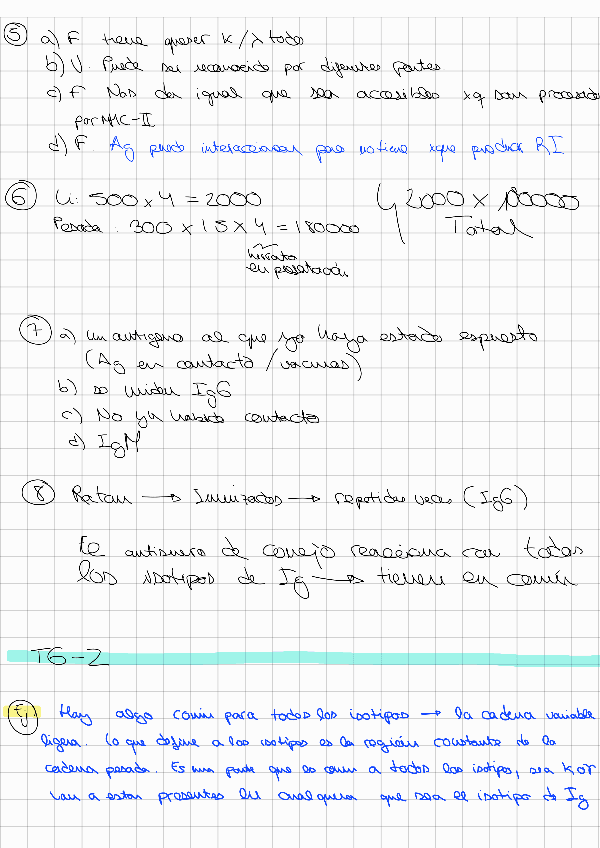 5 a) F tiene que ser K/λ todo
b) V. Puede ser reconocido por diferentes partes
c) F Nos da igual que sea accesibles xq son procesado
por MHC-II
d) F. Ag puede interaccionar pero no tiene xque producir RI
6 Li: 500 x 4 = 2000
Pesada: 300 x 15 x 4 = 180000
2000 x
Total
7 a) Un antígeno al que yo haya estado espuesto
(Ag en contacto / vacunas)
b) se miden IgG
c) No ha habido contacto
d) IgM
8 Ratan → Inmunizados → repetidas veces (IgG)
El antisuero de conejo reacciona con todos
los isotipos de Ig → tienen en común
T6-2
Ej Hay algo común para todos los isotipos → la cadena variable
ligera. Lo que define a los isotipos es la región constante de la
cadena pesada. Es una parte que es común a todos los isotipos, sea K o
van a estar presentes en cualquiera que sea el isotipo de Ig